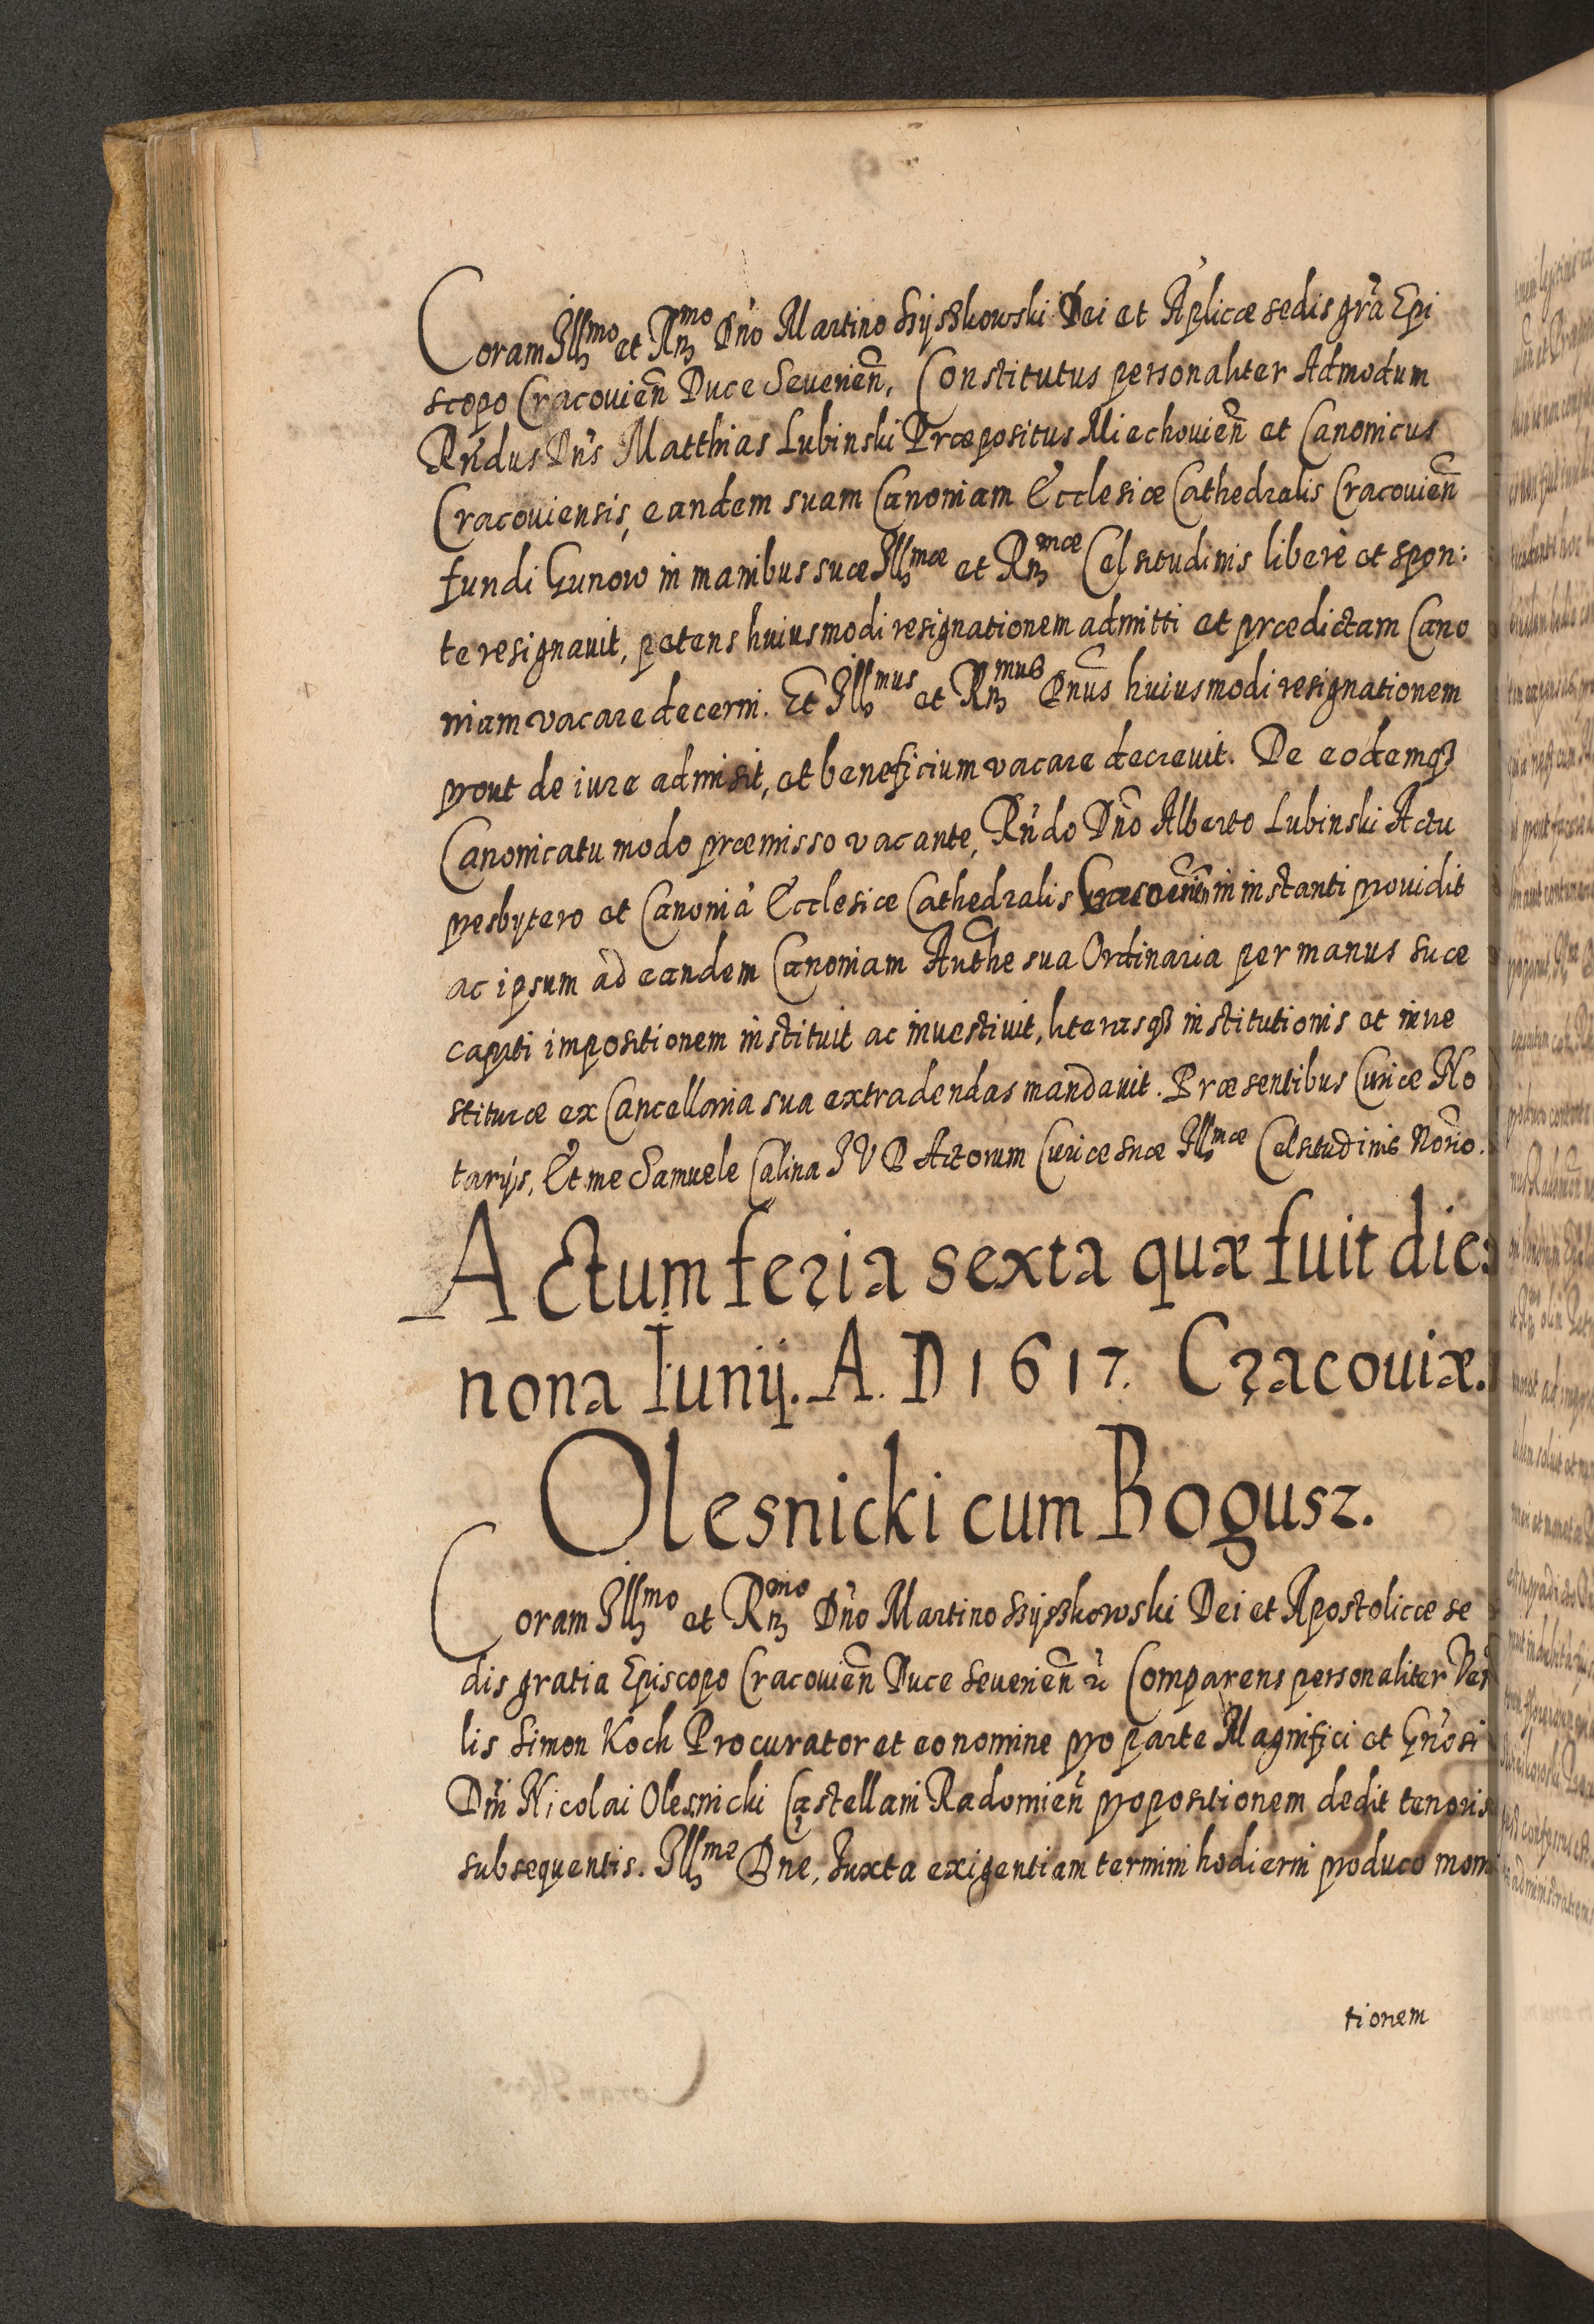 Coram Illmo et Rmo Dno Martino Szyszkowski Dei et Aplicæ sedis gra Epi
scopo Cracouien Duce Seuerien, Constitutus personaliter Admodum
Rndus Dns Matthias Lubinski Præpositus Miechouien et Canonicus
Cracouiensis, eandem suam Canoniam Ecclesiæ Cathedralis Cracouien
fundi Gunow in manibus suæ Illmæ et Rmæ Celsitudinis libere et spon:
te resignauit, petens huiusmodi resignationem admitti et prædictam Cano
niam vacare decerni. Et Illmus et Rmus Dnus huiusmodi resignationem
prout de iure admisit, et beneficium vacare decreuit. De eodemq3
Canonicatu modo præmisso vacante, Rndo Dno Alberto Lubinski Actu
presbytero et Canonia Ecclesiæ Cathedralis in instanti prouidit
ac ipsum ad eandem Canoniam Authe sua Ordinaria per manus suæ
capiti impositionem instituit ac inuestiuit, literasq3 institutionis et inue
stituræ ex Cancellaria sua extradendas mandauit. Præsentibus Curiæ No
tarijs, Et me Samuele Calina I V D Actorum Curiæ suæ Illmæ Celsitudinis Norio.
Actum feria sexta quæ fuit die:
nona Iunij. A. D 1617. Cracouiæ.
Olesnicki cum Bogusz.
Coram Illmo et Rmo Dno Martino Szyszkowski Dei et Apostolicæ se
dis gratia Episcopo Cracouien Duce Seuerien &c Comparens personaliter
lis Simon Koch Procurator et eo nomine pro parte Magnifici et Gnosi
Dni Nicolai Olesnicki Castellani Radomien propositionem dedit tenoris
subsequentis. Illme Dne, Iuxta exigentiam termini hodierni produco moni
tionem